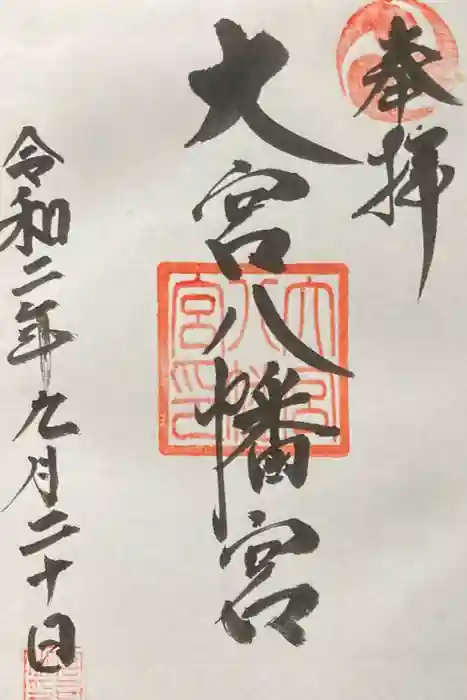 奉拝
大宮八幡宮
大宮八幡宮印
令和二年九月二十日